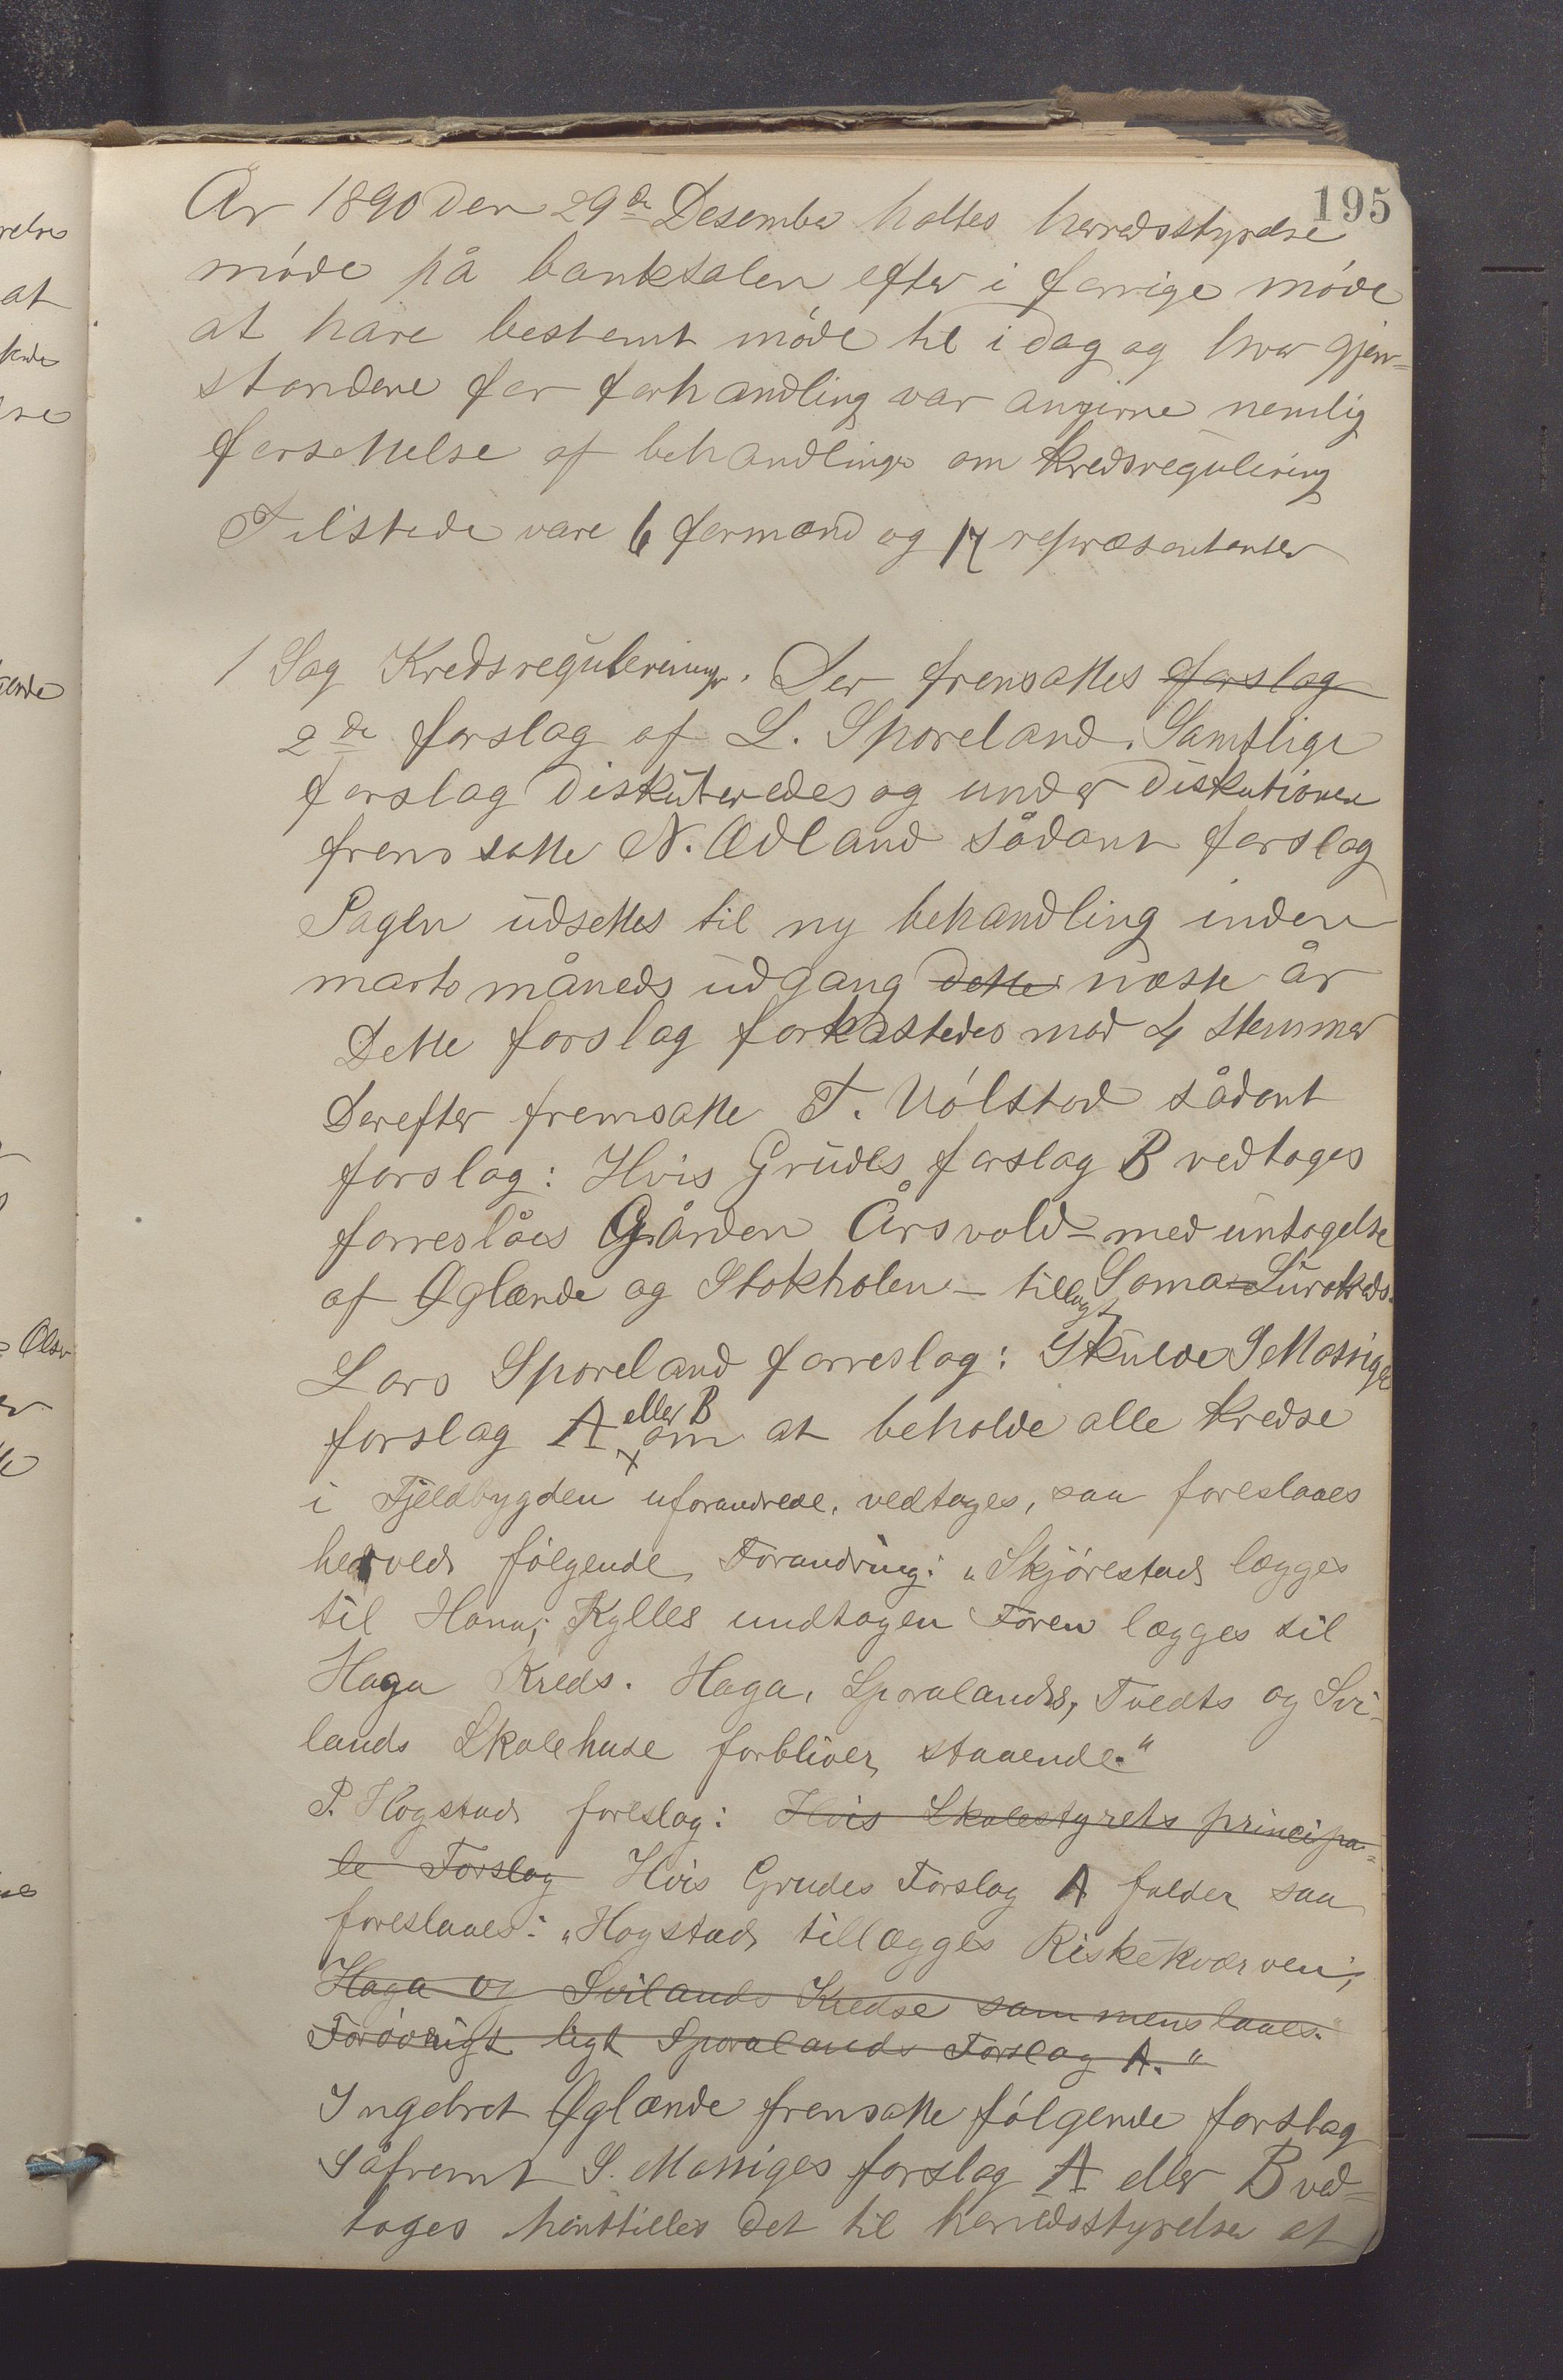 195
År 1890 den 29de Desember holtes herredsstyrelse
møde på banksalen efter i forrige møde
at häve bestemt møde til i dag og hvor gjen-
standene for forhandling var angivne nemlig
forsettelse af behandlings om Kredsregulering
Tilstede vare 6 formænd og 17 repræsentanter
1 Sag Kredsreguleringen. Der fremsattes forslag
2de forslag af L. Sporeland. Samtlige
forslag diskuteredes og under diskutionen
fremsatte N. Ædland sådant forslag
Sagen udsettes til ny behandling inden
marts måneds udgang dette næste år
Dette forslag forkastedes mod 4 stemmer
Derefter fremsatte T. Vølstad sådant
forslag: Hvis Grudes forslag B vedtages
forreslåes Gården Årsvold - med untagelse
af Øglænde og Stokholen - tillagt Soma-Lura kreds.
Lars Sporeland forreslog: Skulde S Mossiges
forslag A eller B om at beholde alle kredse
i Fjeldbygden uforandrede, vedtages, saa foreslaaes
herved følgende Forandring: „Skjørestad lægges
til Hana; Kylles undtagen Foren lægges til
Haga Kreds. Haga, Sporalands, Tvedts og Svi-
lands Skolehuse forbliver staaende."
P. Hogstad foreslog: Hvis Skolestyrets principa-
le Forslag Hvis Grudes Forslag A falder saa
foreslaaes: „Hogstad tillægges Riskekværven;
Haga og Svilands Kredse sammenslaaes.
Forøvrigt ligt Sporalands Forslag A."
Ingebret Øglænde fremsatte følgende forslag
Såfremt S. Mossiges forslag A eller B ved-
tages hentilles det til herredsstyrelsen at